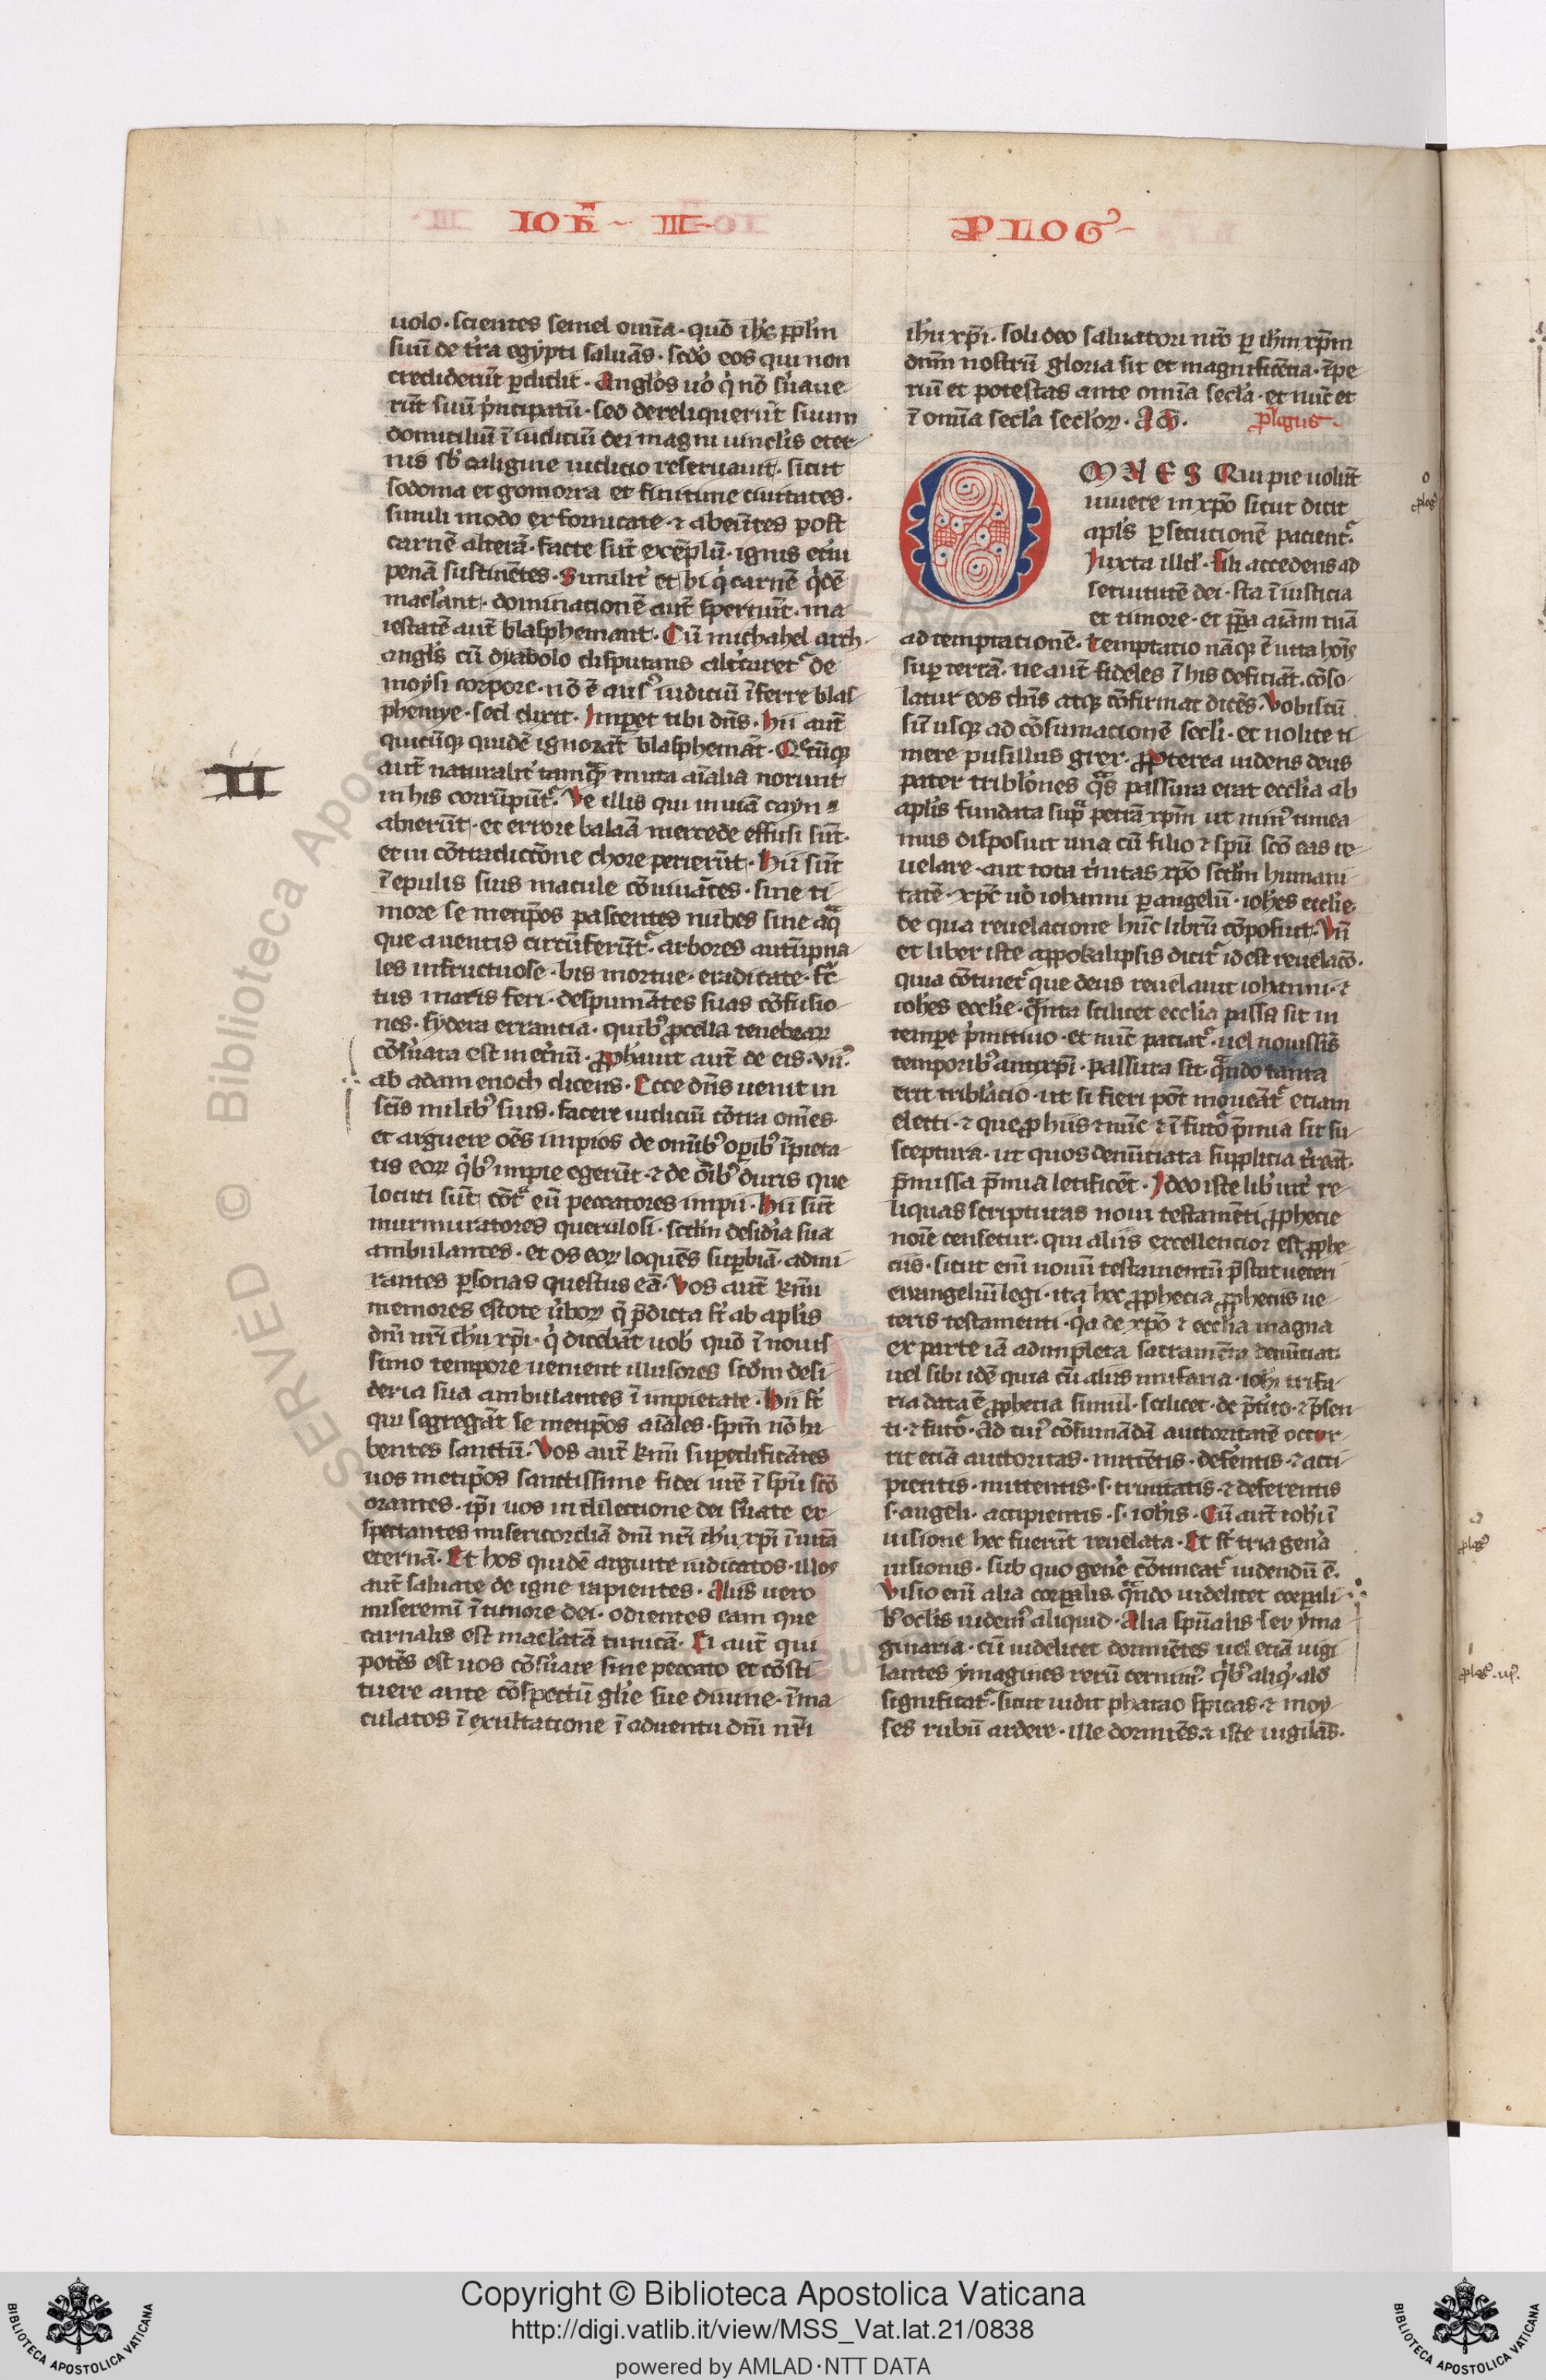 IOħ III
PLOG
uolo · scientes semel om̄ia · quō ih̄s pplm̄
suū de tr̄a egypti saluās · scd̄o eos qui non
crediderūt ꝑdidit · Angl̄os uō q̇ nō s̄uaue
rūt suū p̄ncipatū · seo dereliquerūt suum
domiciliū ī iudiciū dei magni uincl̄is eter
nis sb̄ caligine iudicio reseruauit · sicut
sodoma et gomorra et finitime ciuitates ·
simili modo exfornicate · ⁊ abeūtes post
carnē alterā · facte sūt exēplū · ignis et̄ni
penā sustinētes · Similit̄ et hi q̇ carnē q̇dē
macl̄ant · dominacionē aut̄ spernūt · ma
iestatē aut̄ blasphemant · Cū michahel arch
angl̄s cū dyabolo disputans alt̄caret᷑ de
moysi corpore · nō ē aus᷒ iudiciū īferre blas
phemye · sed dixit · Imperet tibi dn̄s · Hii aut̄
quicūqꝫ quidē ignorāt blasphemāt · Qͤcūqꝫ
aut̄ naturalit̄ tamqͣꝫ muta aīalia norunt
in his corrūpūt᷑ · Ve illis qui in uiā cayn
abierūt · et errore balaā mercede effusi sūt ·
et in cōtradictōne chore perierūt · Hii sūt
ī epulis suis macule cōuiuātes · sine ti
more se metip̄os pascentes nubes sine aqͣ
que a uentis circūferūt᷑ · arbores autūpna
les infructuose · bis mortue · eradicate · fc̄
tus maris feri · despumātes suas cōfusio
nes · sydera errancia · quibꝰ ꝓcella tenebraꝝ
cōs̄uata est in et̄nū · Ꝓph̄auit aut̄ de eis · vii᷒
ab adam enoch dicens · Ecce dn̄s uenit in
sc̄is milibꝰ suis · facere iudiciū cōtra om̄es
et arguere oēs impios de om̄ibꝰ oꝑibꝰ īpieta
tis eoꝝ q̇bꝰ impie egerūt · ⁊ de ōibꝰ duris que
locuti sūt cōtͣ eū peccatores impii · Hii sūt
murmuratores querulosi · scdm̄ desid̄ia sua
ambulantes · et os eoꝝ loquēs suꝑbiā · admi
rantes ꝑsonas questus cā · Vos aut̄ km̄i
memores estote ūboꝝ q̄ p̄dicta st̄ ab apl̄is
dn̄i nr̄i ih̄u xp̄i · q̇ dicebāt uob̄ quō ī nouis
simo tempore uenient illusores scd̄m desi
deria sua ambulantes ī impietate · Hii st̄
qui segregāt se metip̄os aīales · sp̄m nō ha
bentes sanctū · Vos aut̄ km̄i suꝑedificātes
uos metip̄os sanctissime fidei ur̄e ī sp̄u sc̄o
orantes · ip̄i uos in dilectione dei s̄uate ex
spectantes misericordiā dn̄i nr̄i ih̄u xp̄i ī uitā
eternā · Et hos quidē arguite iudicatos · illos
aut̄ saluate de igne rapientes · Aliis uero
miseremī ī timore dei · odientes eam que
carnalis est macl̄atā tunicā · Ei aut̄ qui
potēs est uos cōs̄uare sine peccato et cōsti
tuere ante cōspectū gl̄ie sue diuine · īma
culatos ī exultatione ī aduentu dn̄i nr̄i
II
ih̄u xp̄i · soli deo saluatori nr̄o ꝑ ih̄m xp̄m
dn̄m nostrū gloria sit et magnificēcia · īpe
riū et potestas ante om̄ia secl̄a · et nūc et
ī om̄ia secl̄a secl̄oꝝ · A m̄ · Ꝓlogus ·
OMNES Qui pie uolūt
uiuere in xp̄o sicut dicit
apl̄s ꝑsecutionē pacient᷑
Iuxta illd̄ · Fili accedens ad
seruitutē dei · sta ī iusticia
et timore · et pp̄a aīam tuā
ad temptationē · Temptatio nāqꝫ ē uita hoīs
suꝑ terrā · ne aut̄ fideles ī his deficiāt · cōso
latur eos dn̄s atqꝫ cōfirmat dicēs · Vobiscū
sū usqꝫ ad cōsumacionē secl̄i · et nolite ti
mere pusillus grex · Ꝓpterea uidens deus
pater tribl̄ones qͣs passura erat eccl̄ia ab
apl̄is fundata supͣ petrā xp̄m ut min᷒ timea
mus disposuit una cū filio ⁊ sp̄u sc̄o eas re
uelare · aut tota t̄nitas xp̄o scdm̄ humani
tatē · xp̄c uō iohanni ꝑ angelū · ioh̄es eccl̄ie
de qua reuelacione hūc librū cōposuit · Vn̄
et liber iste appokalipsis dicit᷑ id est reuelac̄o ·
quia cōtinet᷑ que deus reuelauit iohanni · ⁊
ioh̄es eccl̄ie · qͣnta scilicet eccl̄ia passa sit in
tempe p̄mitiuo · et nūc patiat᷑ · uel nouissīs
temporibꝰ antixp̄i · passura sit · qͣndo tanta
erit tribl̄acio · ut si fieri pōt moueāt᷑ etiam
electi · ⁊ que ꝓ hiis ⁊ nūc ⁊ ī fut᷑o p̄mia sit su
sceptura · ut quos denūtiata supplicia t̄reāt ·
p̄missa p̄mia letificēt · Ideo iste lib̄ int̄ re
liquas scripturas noui testamēti ꝓphecie
noīe censetur · qui aliis excellencior est ꝓphe
ciis · sicut enī nouū testamentū p̄stat ueteri
euangeliū legi · ita hec ꝓphecia ꝓpheciis ue
teris testamenti · q̇a de xp̄o ⁊ eccl̄ia magna
ex parte iā adimpleta sacramēta denūciat ·
uel sibi idē quia cū aliis unifaria · ioh̄i trifa
ria data ē ꝓphecia simul · scilicet · de p̄tito · ⁊ p̄sen
ti · ⁊ fut᷑o · Ad cui᷒ cōfirmādā auctoritatē occur
rit etiā auctoritas · mittētis · deferētis · ⁊ acci
pientis · mittentis · s · trinitatis · ⁊ deferentis
s · angeli · accipientis · s · ioh̄is · Cū aut̄ ioh̄i ī
uisione hec fuerūt reuelata · Et st̄ tria gen̄a
uisionis · sub quo gen̄e cōtineat᷑ uidendū ē ·
Visio enī alia corꝑalis qͣndo uidelicet corꝑali
bꝰ ocl̄is uidem᷒ aliquid · Alia sp̄ualis seu yma
ginaria · cū uidelicet dormiētes uel etiā uigi
lantes ymagines rerū cernim᷒ q̇bꝰ aliq̇ · ald̄
significat᷑ · sicut uidit pharao spicas · ⁊ moy
ses rubū ardere · ille dormiēs · ⁊ iste uigilās ·
Copyright © Biblioteca Apostolica Vaticana
http://digi.vatlib.it/view/MSS_Vat.lat.21/0838
powered by AMLAD·NTT DATA
BIBLIOTECA APOSTOLICA VATICANA
BIBLIOTECA APOSTOLICA VATICANA